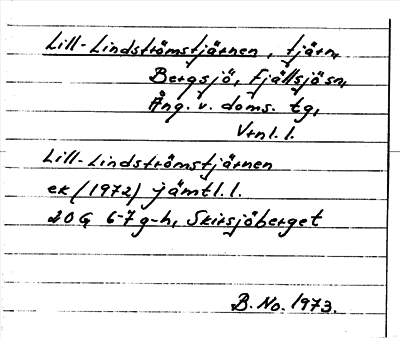 Lill-Lindströmstjärnen, tjärn,
Bergsjö, Fjällsjösn,
Ång. v. doms. tg,
Vrnl. l.
Lill-Lindströmstjärnen
ek (1972) Jämtl. l.
20G 6-7 g-h, Skirsjöberget
B. No. 1973.